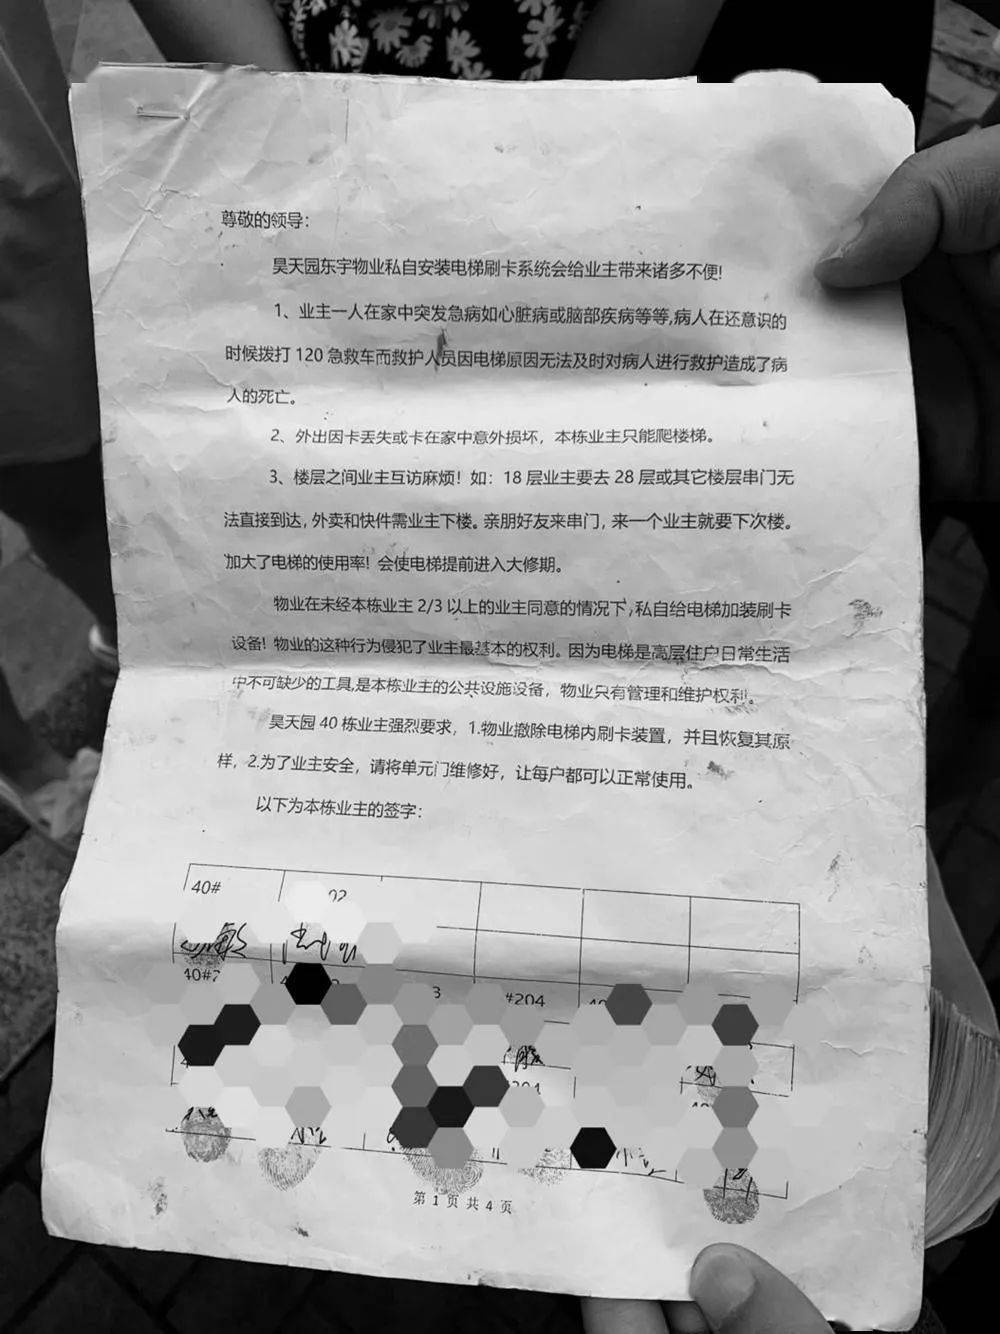 尊敬的领导：
昊天园东宇物业私自安装电梯刷卡系统会给业主带来诸多不便!
1、业主一人在家中突发急病如心脏病或脑部疾病等等,病人在还意识的
时候拨打 120 急救车而救护人员因电梯原因无法及时对病人进行救护造成了病
人的死亡。
2、外出因卡丢失或卡在家中意外损坏，本栋业主只能爬楼梯。
3、楼层之间业主互访麻烦！如：18 层业主要去 28 层或其它楼层串门无
法直接到达，外卖和快件需业主下楼。亲朋好友来串门，来一个业主就要下次楼。
加大了电梯的使用率！会使电梯提前进入大修期。
物业在未经本栋业主 2/3 以上的业主同意的情况下,私自给电梯加装刷卡
设备！物业的这种行为侵犯了业主最基本的权利。因为电梯是高层住户日常生活
中不可缺少的工具,是本栋业主的公共设施设备，物业只有管理和维护权利。
昊天园 40 栋业主强烈要求，1.物业撤除电梯内刷卡装置，并且恢复其原
样，2.为了业主安全，请将单元门维修好，让每户都可以正常使用。
以下为本栋业主的签字：
40# 02
40#2 3 #204 40
第 1 页 共 4 页